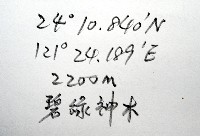 24° 10.840'N
121° 24.189'E
2200m
碧綠神木